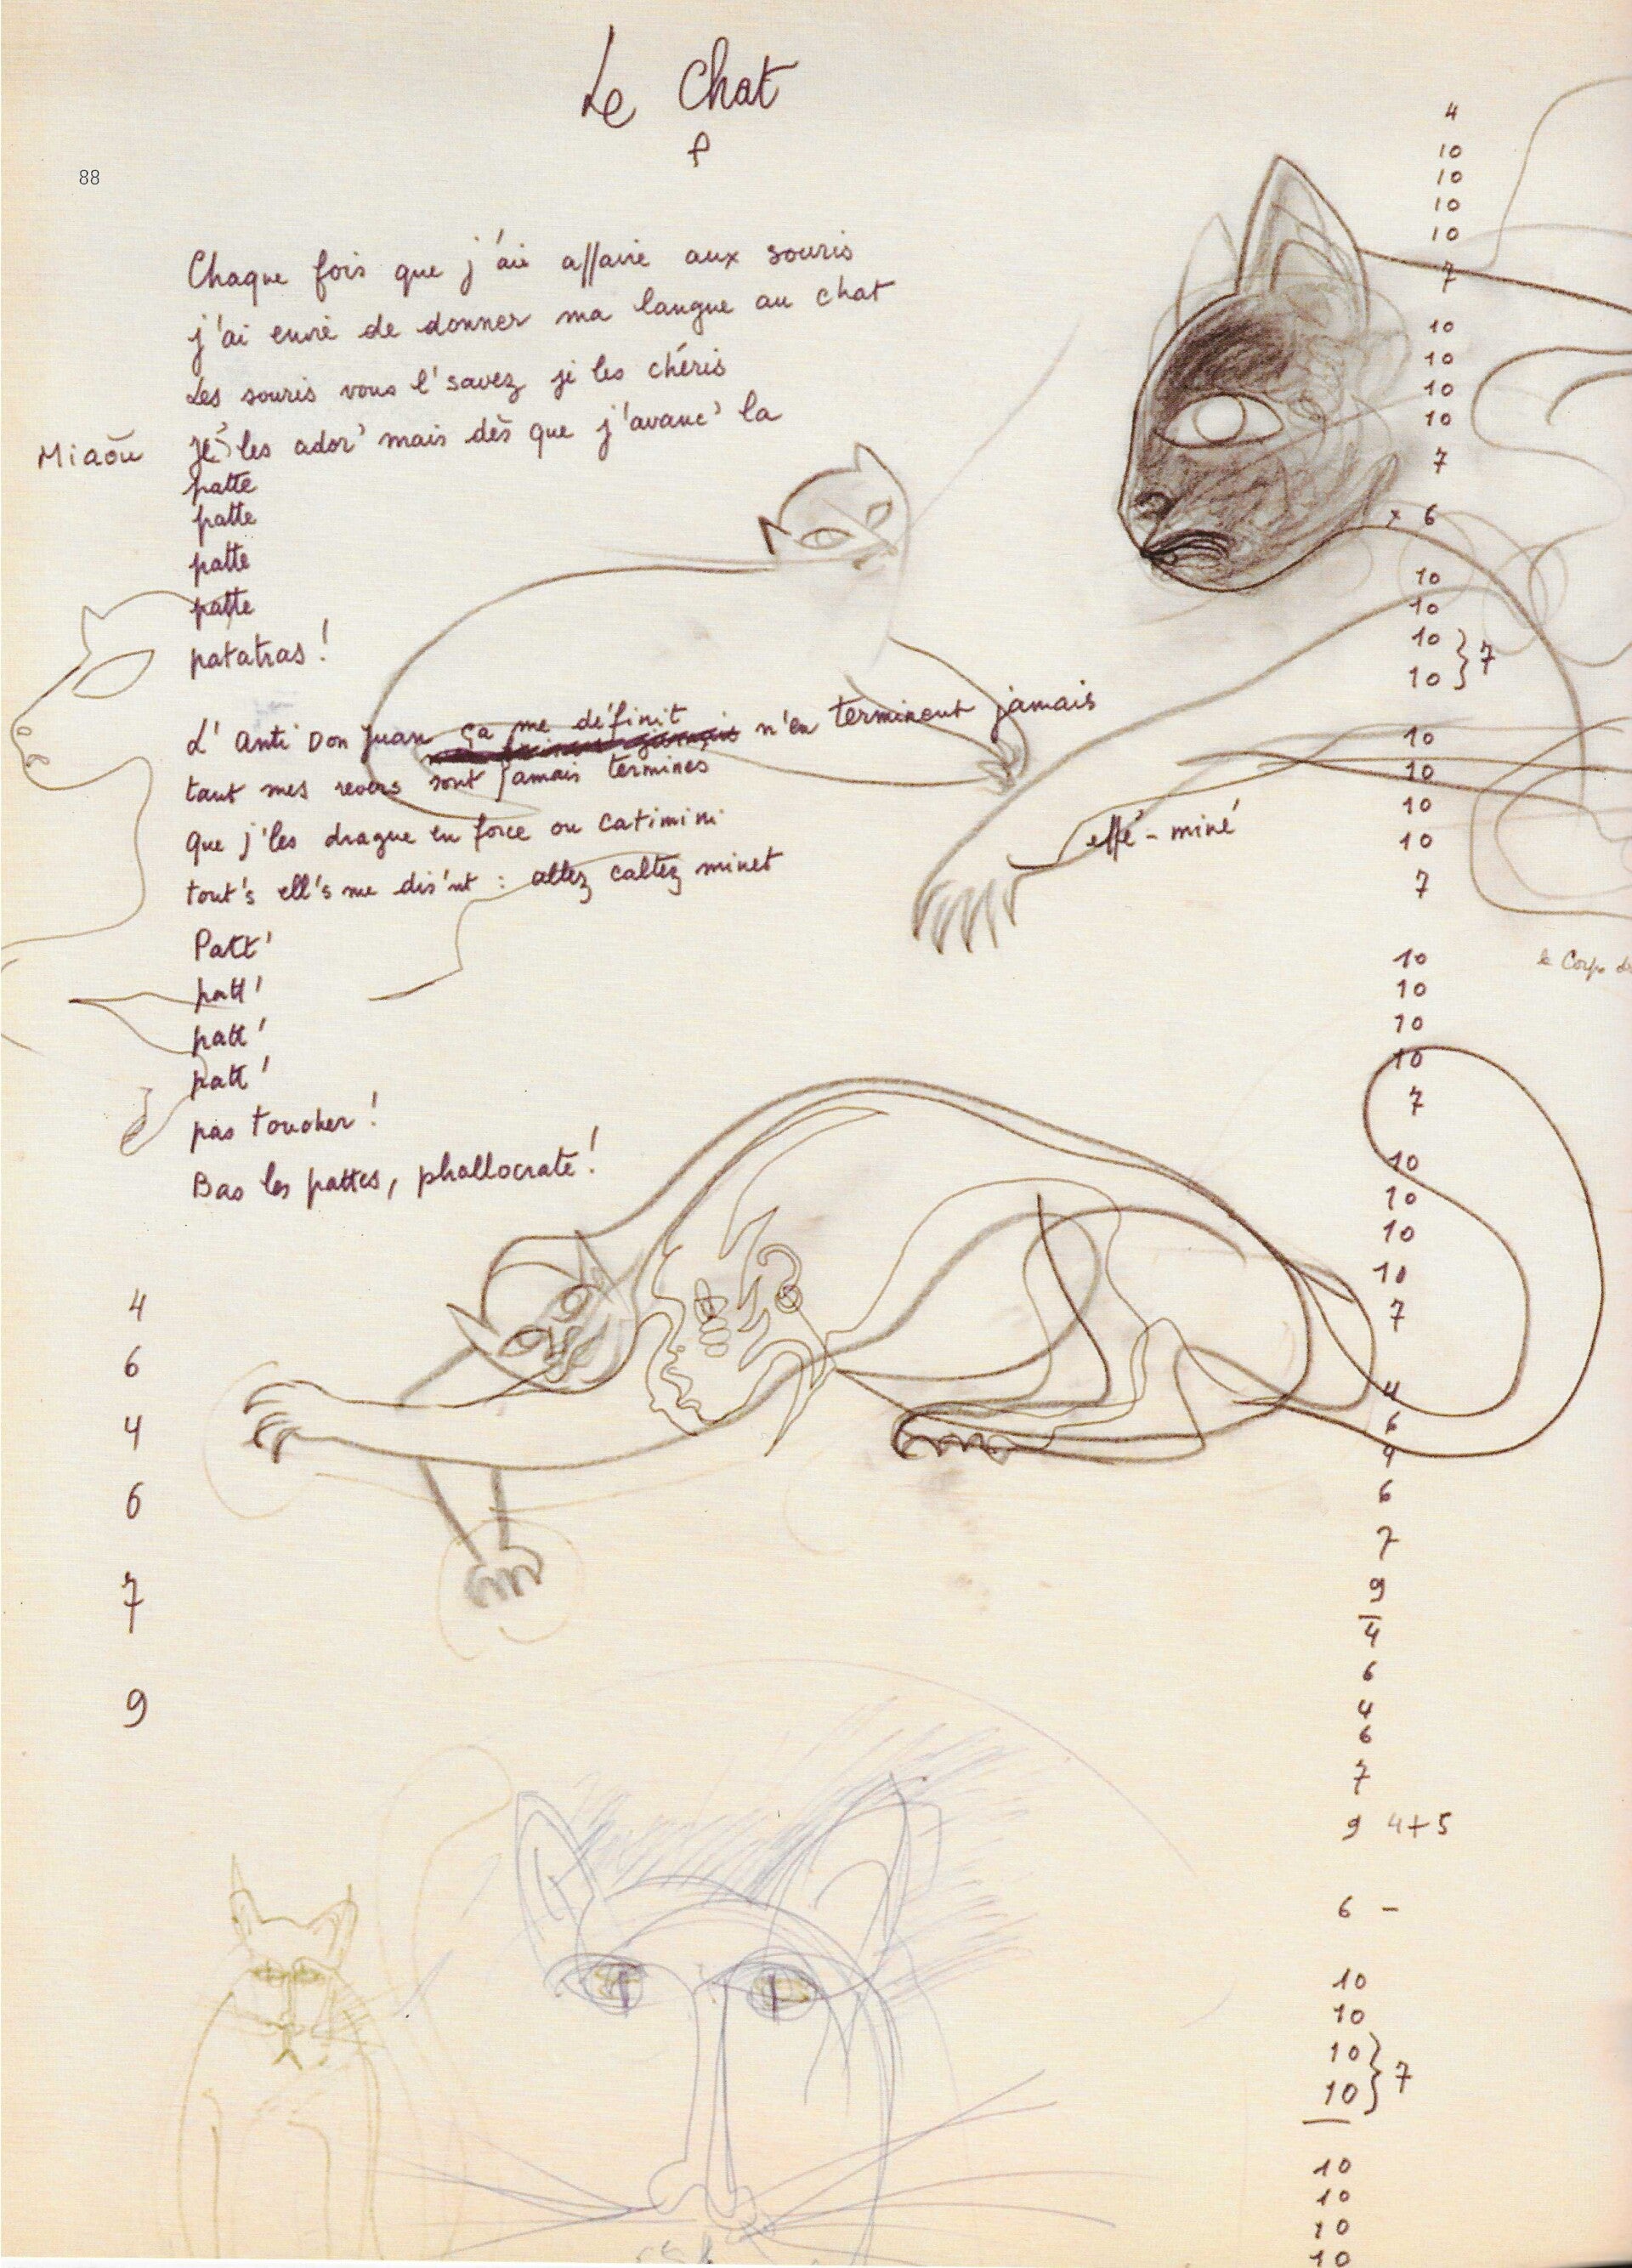 Le Chat
88
4
10
10
10
10
7
Chaque fois que j'ai affaire aux souris
j'ai envie de donner ma langue au chat
Les souris vous l'savez je les chéris
Miaou Je les ador' mais dès que j'avanc' la
patte
patte
patte
patte
patatras !
10
10
10
10
7
x 6
10
10
10
10 } 7
L'Anti Don Juan ça me définit n'en terminent jamais
taut mes revers sont jamais terminés
Que j'les drague en force ou catimini
tout's ell's me dis'nt : allez caltez minet
effé-miné
10
10
10
10
7
Patt'
patt'
patt'
patt'
pas toucher !
Bas les pattes, phallocrate !
10
10
10
10
7
le Corps
10
10
10
10
7
4
6
4
6
7
9
4
6
4
6
7
9
4
6
4
6
7
9 4+5
6 -
10
10
10
10 } 7
10
10
10
10